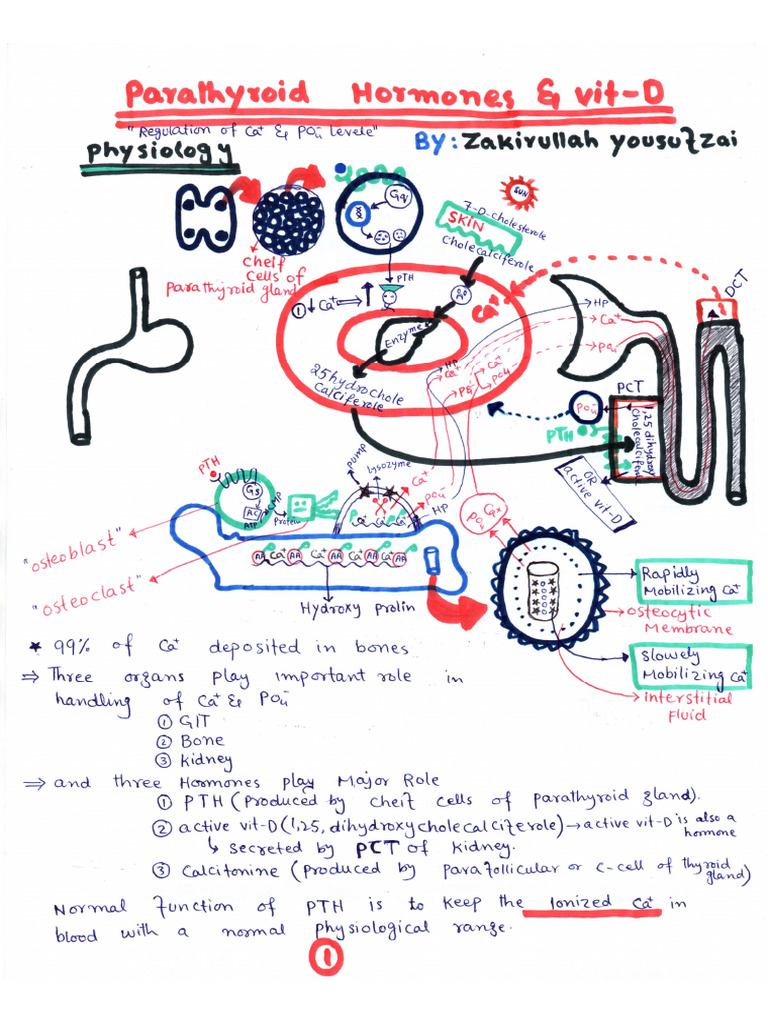 Parathyroid Hormones & vit-D
"Regulation of Ca⁺ & PO₄⁻ levele"
Physiology
By: Zakirullah yousufzai
SUN
7-D-cholesterole
SKIN
cholecalciferole
Gq
cheif
cells of
parathyroid gland
PTH
① ↓ Ca⁺ ⇒ ↑
Ca⁺
Enzyme
25 hydrochole
calciferole
HP
Ca⁺
PO₄⁻
Ca⁺
PO₄
HP
Ca⁺
PO₄
DCT
PCT
PO₄⁻
PTH
1,25 dihydroxy
cholecalciferol
OR
active vit-D
PTH
Gs
AC
ATP
CAMP
Protein
pump
lysozyme
Ca⁺ Ca⁺ Ca⁺
Ca⁺
PO₄⁻
HP
"osteoblast"
"osteoclast"
AA Ca⁺ AA Ca⁺ AA Ca⁺ AA Ca⁺ AA
Hydroxy prolin
PO₄
Ca⁺
Rapidly
Mobilizing Ca⁺
osteocytic
Membrane
Slowely
Mobilizing Ca⁺
interstitial
Fluid
★ 99% of Ca⁺ deposited in bones
⇒ Three organs play important role in
handling of Ca⁺ & PO₄⁻
① GIT
② Bone
③ kidney
⇒ and three Hormones play Major Role
① PTH (Produced by cheif cells of parathyroid gland).
② active vit-D (1,25, dihydroxycholecalciferole) → active vit-D is also a
hormone
↳ secreted by PCT of kidney.
③ Calcitonine (produced by parafollicular or c-cell of thyroid
gland)
Normal function of PTH is to keep the Ionized Ca⁺ in
blood with a normal physiological range.
①